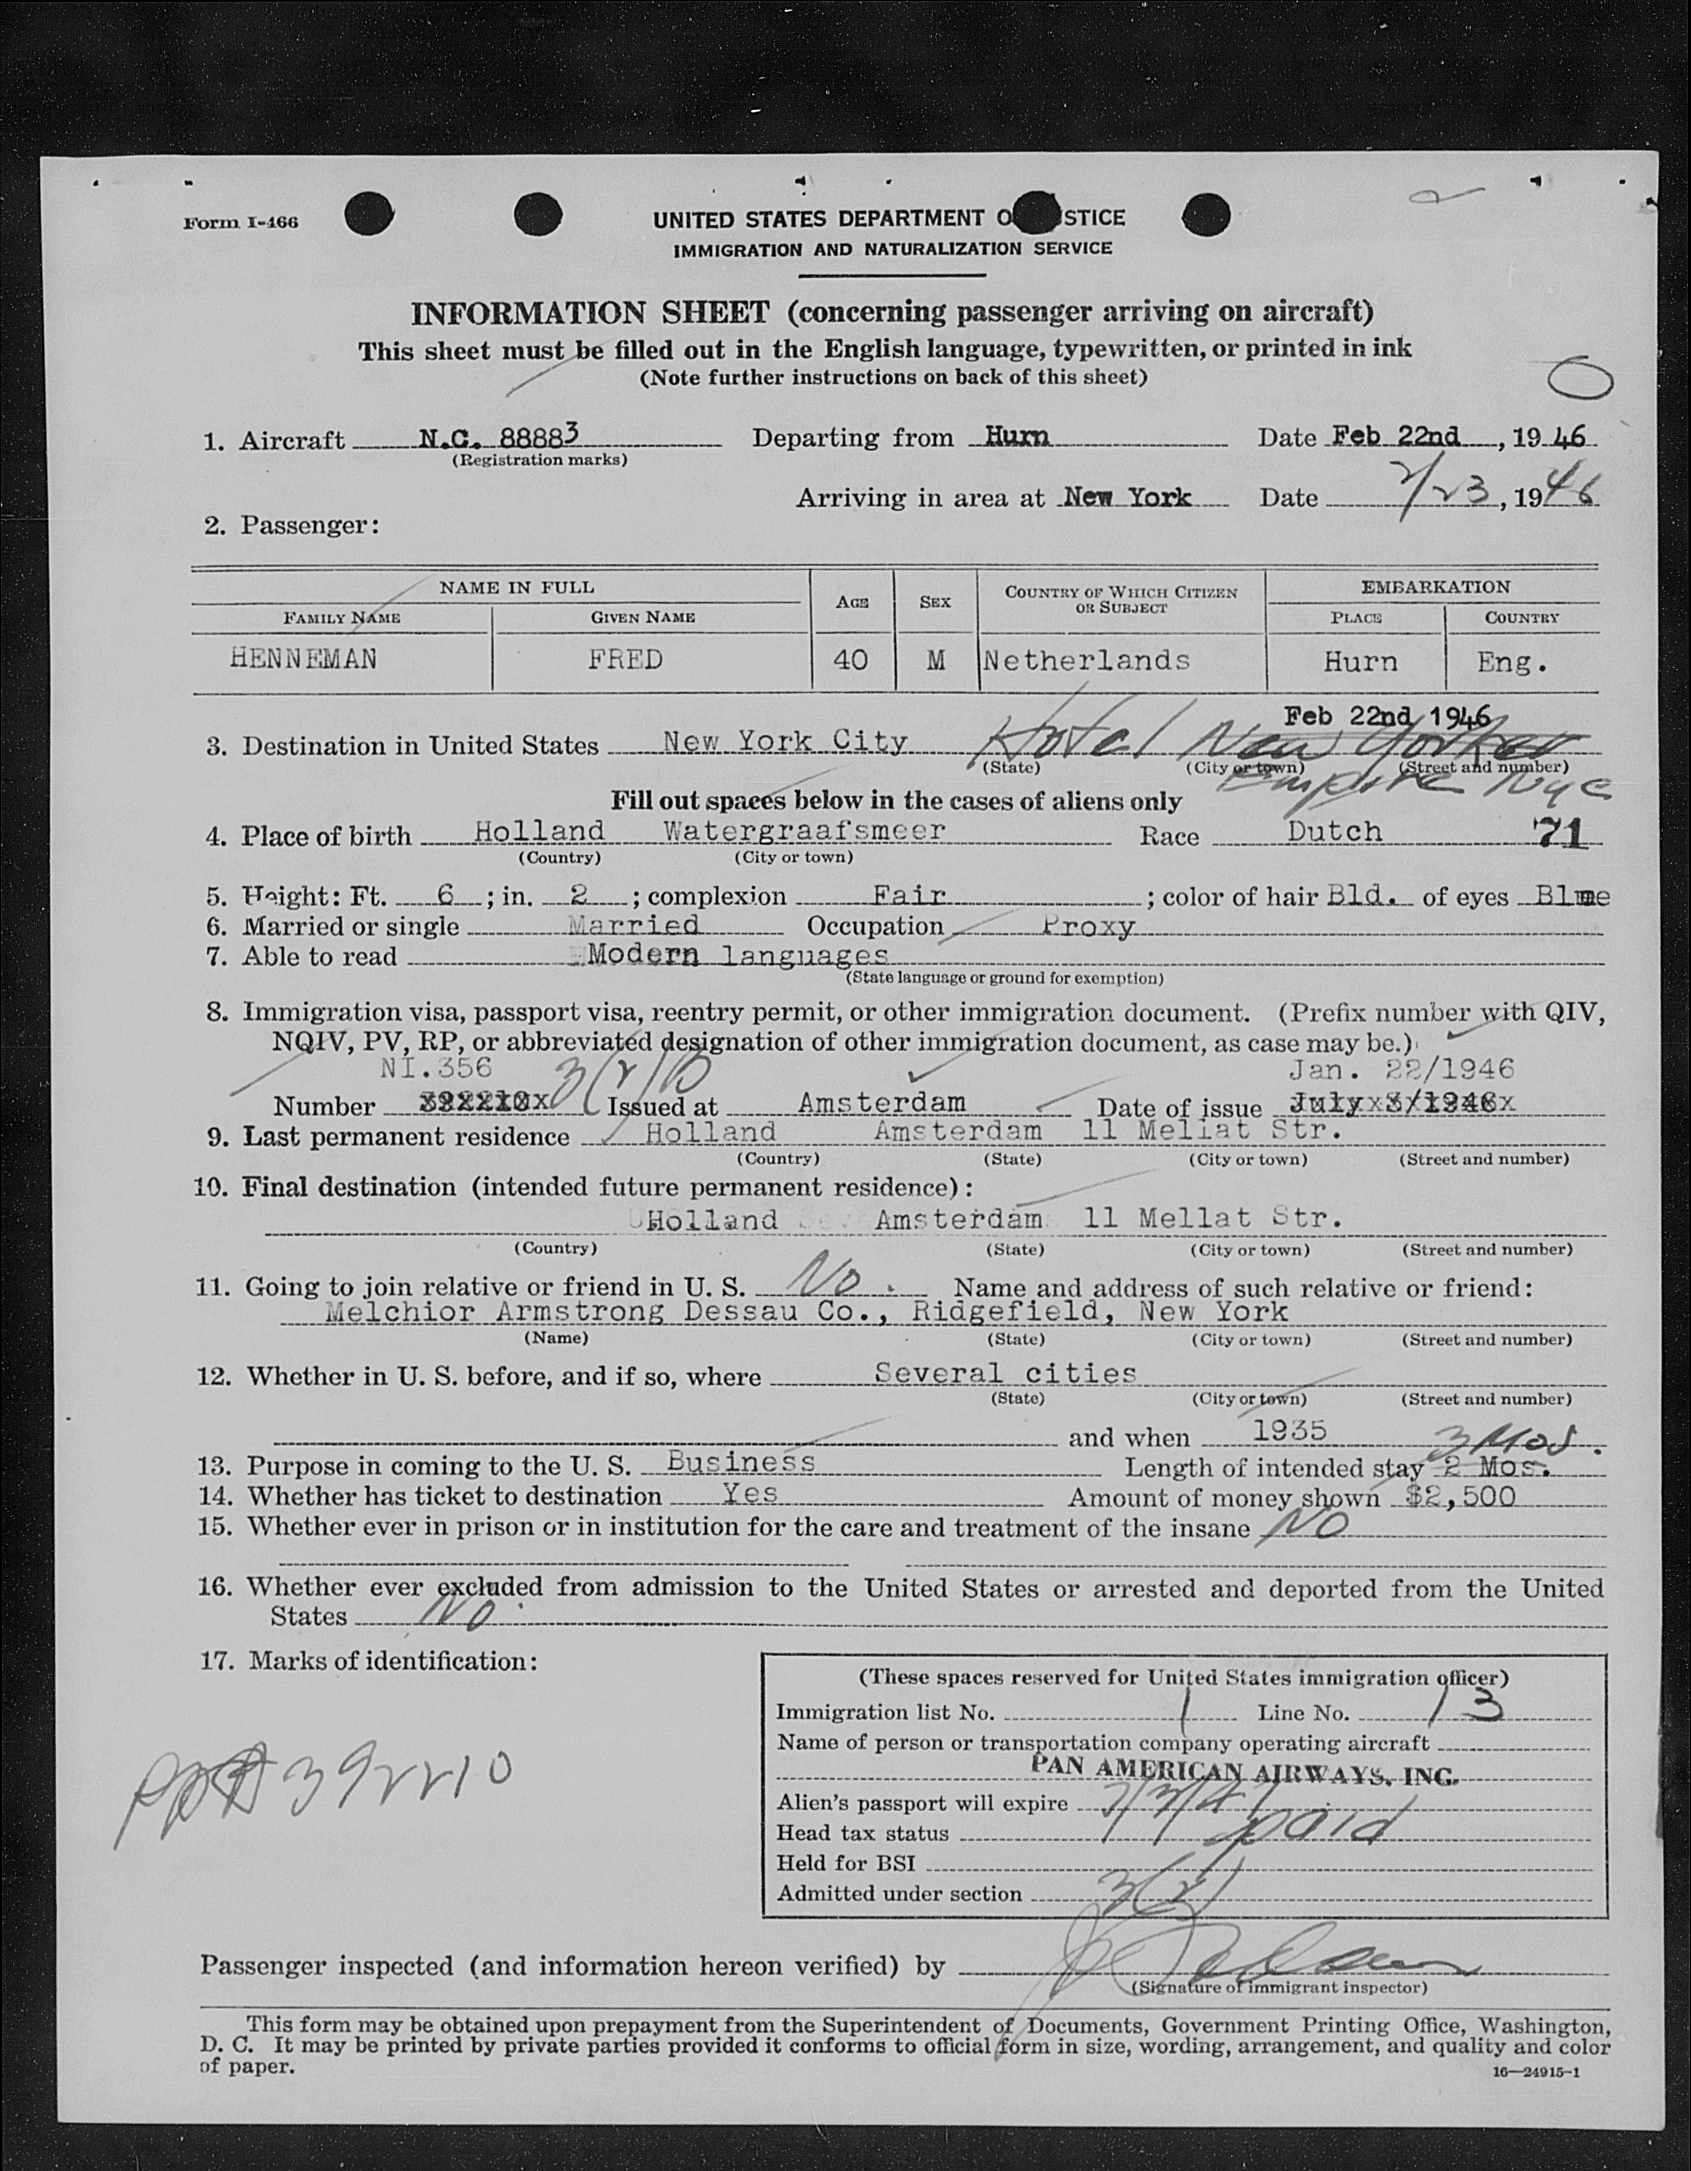 Form I-466
UNITED STATES DEPARTMENT O STICE
IMMIGRATION AND NATURALIZATION SERVICE
INFORMATION SHEET (concerning passenger arriving on aircraft)
This sheet must be filled out in the English language, typewritten, or printed in ink
(Note further instructions on back of this sheet)
1. Aircraft N.C. 88883 Departing from Hurn Date Feb 22nd, 1946
(Registration marks)
Arriving in area at New York Date 2/23, 1946
2. Passenger:
NAME IN FULL AGE SEX COUNTRY OF WHICH CITIZEN OR SUBJECT EMBARKATION
FAMILY NAME GIVEN NAME PLACE COUNTRY
HENNEMAN FRED 40 M Netherlands Hurn Eng.
Feb 22nd 1946
3. Destination in United States New York City Hotel New Yorker
(State) (City or town) (Street and number)
Empire Nyc
Fill out spaces below in the cases of aliens only
4. Place of birth Holland Watergraafsmeer Race Dutch 71
(Country) (City or town)
5. Height: Ft. 6; in. 2; complexion Fair; color of hair Bld. of eyes Blue
6. Married or single Married Occupation Proxy
7. Able to read Modern languages
(State language or ground for exemption)
8. Immigration visa, passport visa, reentry permit, or other immigration document. (Prefix number with QIV,
NQIV, PV, RP, or abbreviated designation of other immigration document, as case may be.)
NI.356 3(2)B Jan. 22/1946
Number 392210 Issued at Amsterdam Date of issue July 3/1946
9. Last permanent residence Holland Amsterdam 11 Mellat Str.
(Country) (State) (City or town) (Street and number)
10. Final destination (intended future permanent residence):
Holland Amsterdam 11 Mellat Str.
(Country) (State) (City or town) (Street and number)
11. Going to join relative or friend in U. S. No. Name and address of such relative or friend:
Melchior Armstrong Dessau Co., Ridgefield, New York
(Name) (State) (City or town) (Street and number)
12. Whether in U. S. before, and if so, where Several cities
(State) (City or town) (Street and number)
and when 1935 3 Mos.
13. Purpose in coming to the U. S. Business Length of intended stay 2 Mos.
14. Whether has ticket to destination Yes Amount of money shown $2,500
15. Whether ever in prison or in institution for the care and treatment of the insane NO
16. Whether ever excluded from admission to the United States or arrested and deported from the United
States No.
17. Marks of identification:
(These spaces reserved for United States immigration officer)
Immigration list No. 1 Line No. 13
Name of person or transportation company operating aircraft
PAN AMERICAN AIRWAYS, INC.
Alien's passport will expire 7/3/47
Head tax status paid
Held for BSI
Admitted under section 3(2)
PP# 392210
Passenger inspected (and information hereon verified) by
(Signature of immigrant inspector)
This form may be obtained upon prepayment from the Superintendent of Documents, Government Printing Office, Washington,
D. C. It may be printed by private parties provided it conforms to official form in size, wording, arrangement, and quality and color
of paper.
16—24915-1